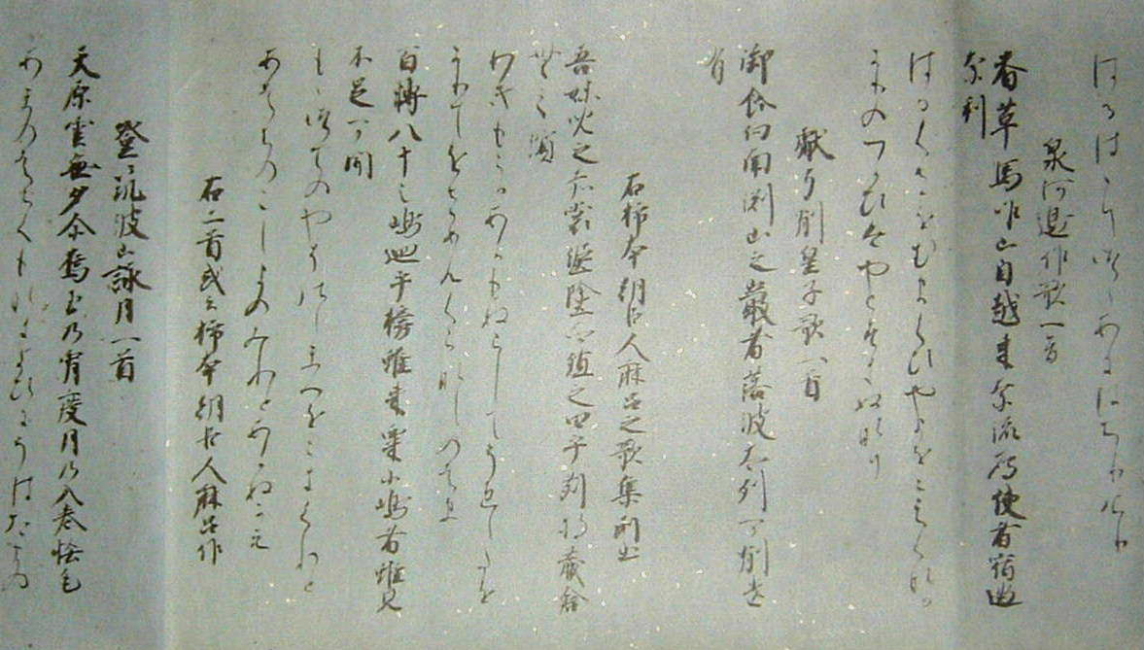 はるはゝりつゝあきはちりけり
泉河邊作歌一首
春草馬咋山自越来奈流鴈使者宿過
奈利
はるくさをむまくひやまをこえくなる
かりのつかひはやとすきぬなり
獻弓削皇子歌一首
御食向南淵山之巌者落波太列可削遺
有
右柿本朝臣人麻呂之歌集所出
吾妹児之赤裳埿塗而殖之田乎刈将蔵倉
無之濱
わきもこかあかもぬらしてうゑしたを
かりてをさめんくらなしのはま
百轉八十之嶋廻乎榜雖来粟小嶋者雖見
不足可聞
もゝつてのやそのしまわをこきくれと
あはのこしまのみれとあかぬかも
右二首或云柿本朝臣人麻呂作
登筑波山詠月一首
天原雲無夕尒烏玉乃宵度月乃入巻恡毛
あまのはらくもなきよひにうはたまの